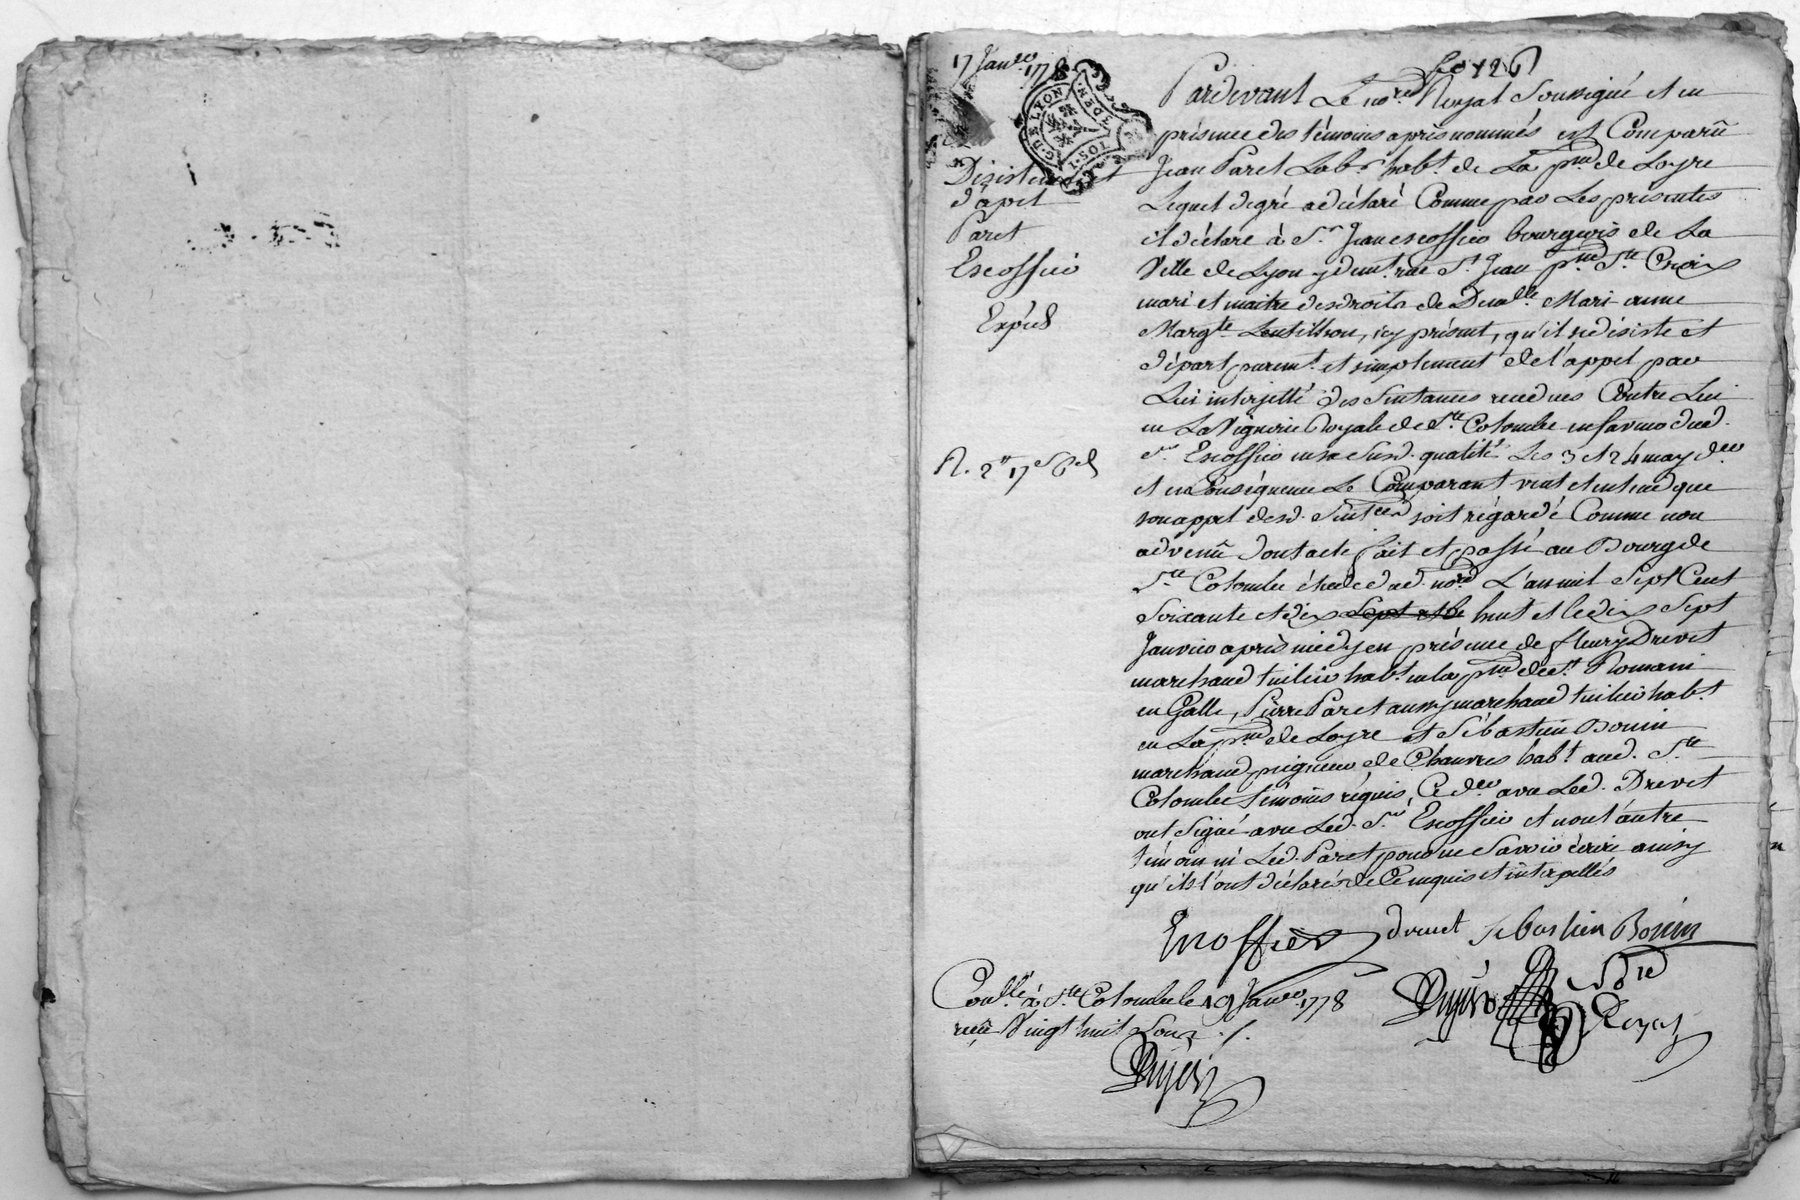 17 Janv.er 1778
G. DE LYON
1 SOL
3 DEN.
Desistement
d'apel
Paret
Escoffier
Expéd
R. 2# 17s 6d
Pardevant Le no.re Royal Soussigné et en
présence des témoins après nommés est Comparû
Jean Paret Lab.r hab.t de La p.sse de Loyre
Lequel de gré a déclaré Comme par Les présentes
il déclare à S.r Jean escoffier bourgeois de La
Ville de Lyon y dem.t rue S.t Jean p.sse S.te Croix
mari et maitre des droits de Dem.lle Mari anne
Marg.te Lentillion, icy présent, qu'il se désiste et
départ purem.t et simplement de l'appel par
Lui interjetté des Sentances rendues Contre Lui
en La Viguerie Royale de S.te Colombe en faveur dud.
S.r Escoffier en sa Susd. qualité Les 3 et 24 may d.er
et en Conséquence Le Comparant veut et entend que
son appel desd. Sent.ces soit régardé Comme non
advenû dont acte fait et passé au Bourg de
S.te Colombe étude dud. no.re L'an mil Sept Cent
Soixante et dix Sept et le huit et le dix Sept
Janvier après midy en présence de fleury Drevet
marchand tuilier hab.t en la p.sse de S.t Romain
en Galle, Pierre Paret aussy marchand tuilier hab.t
en La p.sse de Loyre et Sébastien Bonin
marchand peigneur de Chanvres hab.t aud. S.te
Colombe témoins réquis, Ce d.er avec Led. Drevet
ont Signé avec Led. S.r Escoffier et non l'autre
témoin ni Led. Paret pour ne Savoir écrire ainsy
qu'ils l'ont déclaré de Ce enquis et interpellés
Escoffier drevet sebastien Bonin
Con.llé à S.te Colombe le 19 Janv.er 1778
reçû Vingt huit Sous
no.re
Royal